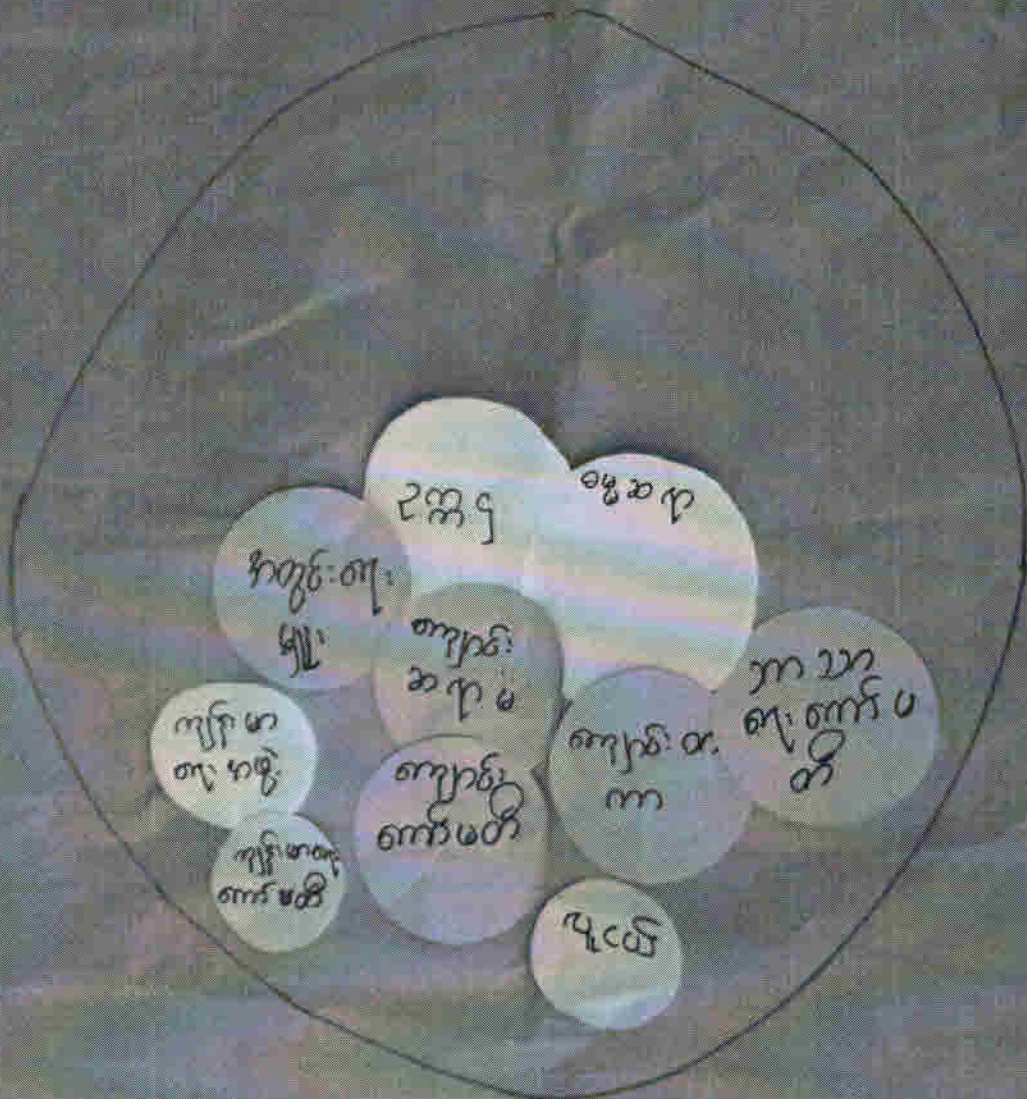 ဥက္ကဌ
ဓမ္မဆရာ
အတွင်းရေး
မှူး
ကျောင်း
ဆရာမ
ဘာသာ
ရေးကော်မ
တီ
ကျန်းမာ
ရေးအဖွဲ့
ကျောင်း
ကော်မတီ
ကျောင်းထ
ကာ
ကျန်းမာရေး
ကော်မတီ
လူငယ်